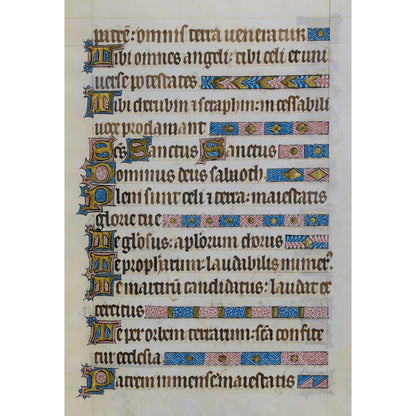 patrē: omnis terra veneratur
Tibi omnes angeli: tibi celi et uni
verse potestates
Tibi cherubin et seraphin: incessabili
voce proclamant
Scs Sanctus Sanctus
Dominus deus sabaoth
Pleni sunt celi et terra: maiestatis
glorie tue
Te gl'osus: aplorum chorus
Te prophetarum: laudabilis numerus
Te martirum candidatus: laudat ex
ercitus
Te per orbem terrarum: scā confite
tur ecclesia
Patrem inmense maiestatis